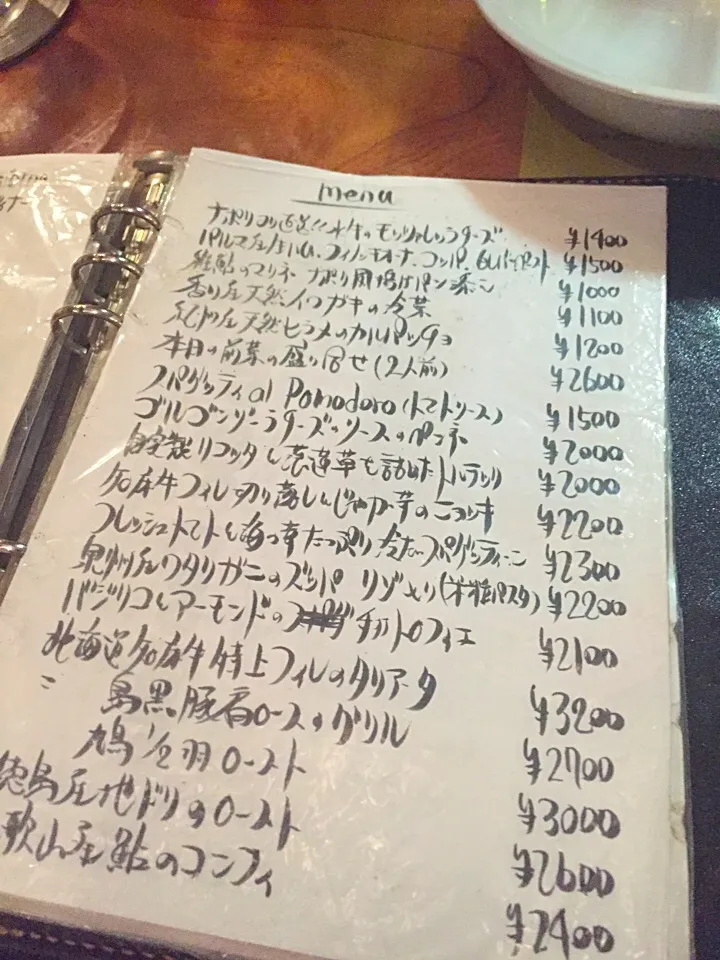 menu
ナポリより直送!!水牛のモッツァレッラチーズ ¥1400
パルマ産生ハム、フィノッキオーナ、コッパ ¥1500
稚鮎のマリネ ナポリ風揚げパン添え ¥1000
香川産天然イワガキの冷菜 ¥1100
産天然ヒラメのカルパッチョ ¥1200
本日の前菜の盛り合せ(2人前) ¥2600
スパゲッティ al Pomodoro(トマトソース) ¥1500
ゴルゴンゾーラチーズのソースのペンネ ¥2000
自家製リコッタと菠薐草を詰めたトルテッリ ¥2000
牛フィレ切り落しとじゃが芋のニョッキ ¥2200
フレッシュトマトと海の幸たっぷり冷たいスパゲッティーニ ¥2300
泉州産ワタリガニのズッパ リゾーニ(米粒パスタ) ¥2200
バジリコとアーモンドの トロフィエ ¥2100
北海道 牛特上フィレのタリアータ ¥3200
〃 島黒豚肩ロースのグリル ¥2700
鳩 羽ロースト ¥3000
徳島産地ドリのロースト ¥2600
歌山産鮎のコンフィ ¥2400